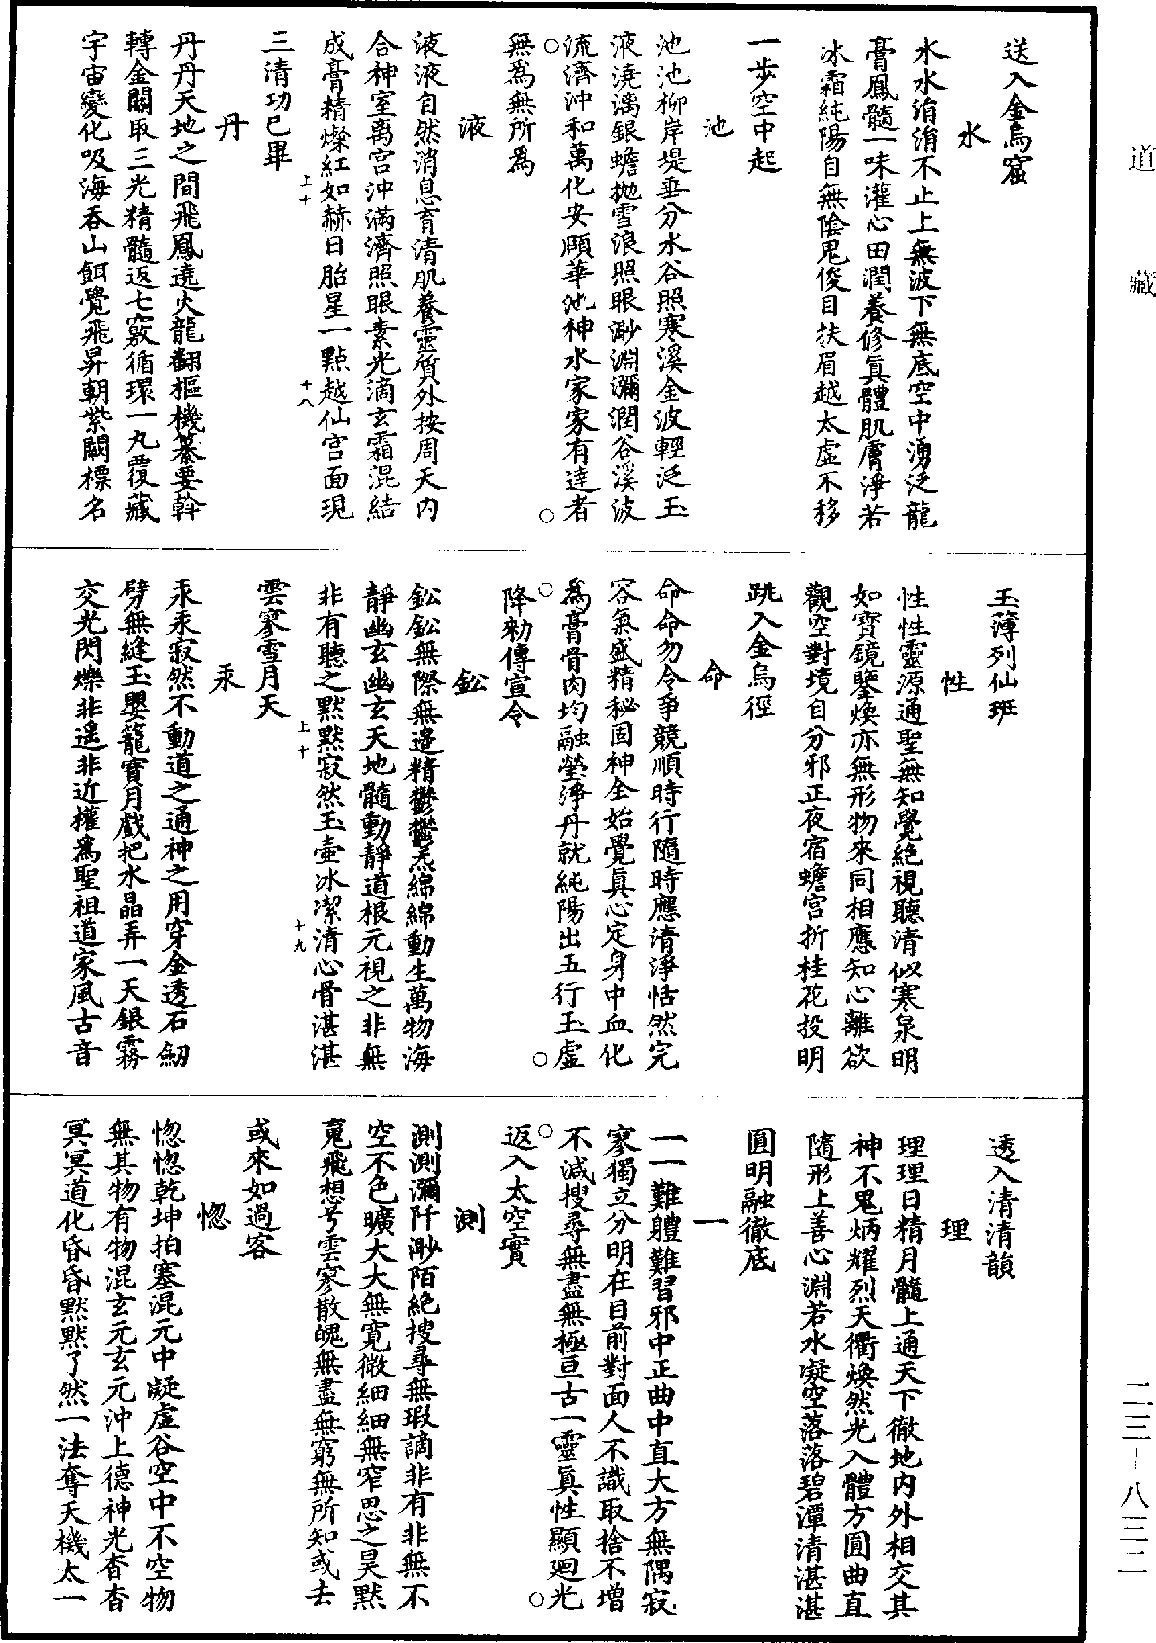 送入金烏窟
水
水水涓涓不止上無波下無底空中湧泛龍
膏鳳髓一味灌心田潤養修眞體肌膚淨若
冰霜純陽自無陰鬼俊目扶眉越太虛不移
一步空中起
池
池池柳岸堤垂分水谷照寒溪金波輕泛玉
液澆漓銀蟾抛雪浪照眼渺淵瀰潤谷溪波
流濟沖和萬化安頤華池神水家家有達者
無為無所為
液
液液自然消息育清肌養靈質外按周天内
合神室离宮沖滿濟照眼素光滴玄霜混結
成膏精燦紅如赫日胎星一點越仙宫面現
三清功已畢
上十
十八
丹
丹丹天地之間飛鳳遶火龍翻摳機纂要斡
轉金關取三光精髓返七竅循環一九覆藏
宇宙變化吸海吞山餌覺飛昇朝紫闕標名
玉薄列仙班
性
性性靈源通聖無知覺絶視聽清似寒泉明
如寶鏡鑒煥亦無形物來同相應知心離欲
觀空對境自分邪正夜宿蟾宫折桂花投明
跳入金烏徑
命
命命勿令爭競順時行隨時應清淨恬然完
容氣盛精秘固神全始覺眞心定身中血化
為膏骨肉均融瑩淨丹就純陽出五行玉虛
降勑傳宣令
鈆
鈆鈆無際無邊精鬱鬱炁綿綿動生萬物海
靜幽玄幽玄天地髓動靜道根元視之非無
非有聽之默默寂然玉壺冰潔清心骨湛湛
雲寥雪月天
上十
十九
汞
汞汞寂然不動道之通神之用穿金透石刼
劈無縫玉嬰籠寳月戲把水晶弄一天銀霧
交光閃爍非遙非近權為聖祖道家風古音
透入清清韻
理
理理日精月髓上通天下徹地内外相交其
神不鬼炳耀烈天衢煥然光入體方圓曲直
隨形上善心淵若水凝空落落碧潭清湛湛
圓明融徹底
一
一一難體難習邪中正曲中直大方無隅寂
寥獨立分明在目前對面人不識取捨不增
不減搜尋無盡無極亘古一靈眞性顯廻光
返入太空寳
測
測測瀰阡渺陌絶搜尋無瑕謫非有非無不
空不色曠大大無寬微細細無窄思之昊默
䰟飛想兮雲寥散魄無盡無窮無所知或去
或來如過客
惚
惚惚乾坤拍塞混元中凝虛谷空中不空物
無其物有物混玄元玄元沖上德神光杳杳
冥冥道化昏昏默默了然一法奪天機太一
道 藏
二三－八三二